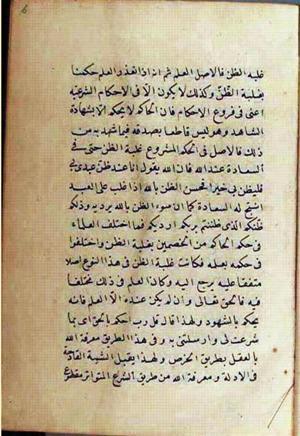 غلبة الظن فالاصل العلم ثم انه اذا تعذر العلم حكمنا
بغلبة الظن وكذلك لا يكون الا في الاحكام الشرعية
اعنى فى فروع الاحكام فان الحاكم لا يحكم الا بشهادة
الشاهد وهو ليس قاطعا بصدقه فيما شهد به من
ذلك فالاصل فى الحكم المشروع غلبة الظن حتى فى
السعادة عند الله فان الله يقول انا عند ظن عبدى بى
فليظن بى خيرا فحسن الظن بالله اذا غلب على العبد
انتج له السعادة كما ان سوء الظن بالله يرديه وذلكم
ظنكم الذى ظننتم بربكم ارديكم فما اختلف العلماء
فى حكم الحاكم من الخصمين بغلبة الظن واختلفوا
فى حكمه بعلمه فكانت غلبة الظن فى هذا النوع اصلا
متفقا عليه يرجع اليه وكان العلم فى ذلك مختلفا
فيه فالحق تعالى وان لم يكن عنده الا العلم فانه
يحكم بالشهود ولهذا قال قل رب احكم بالحق اى بما
شرعت لى وارسلتنى به وفى هذا الطريق معرفة الله
بالعقل بطريق الخرص ولهذا يقبل الشبه القادحة
فى الادلة ومعرفة الله من طريق الشرع المتواتر مقطوع